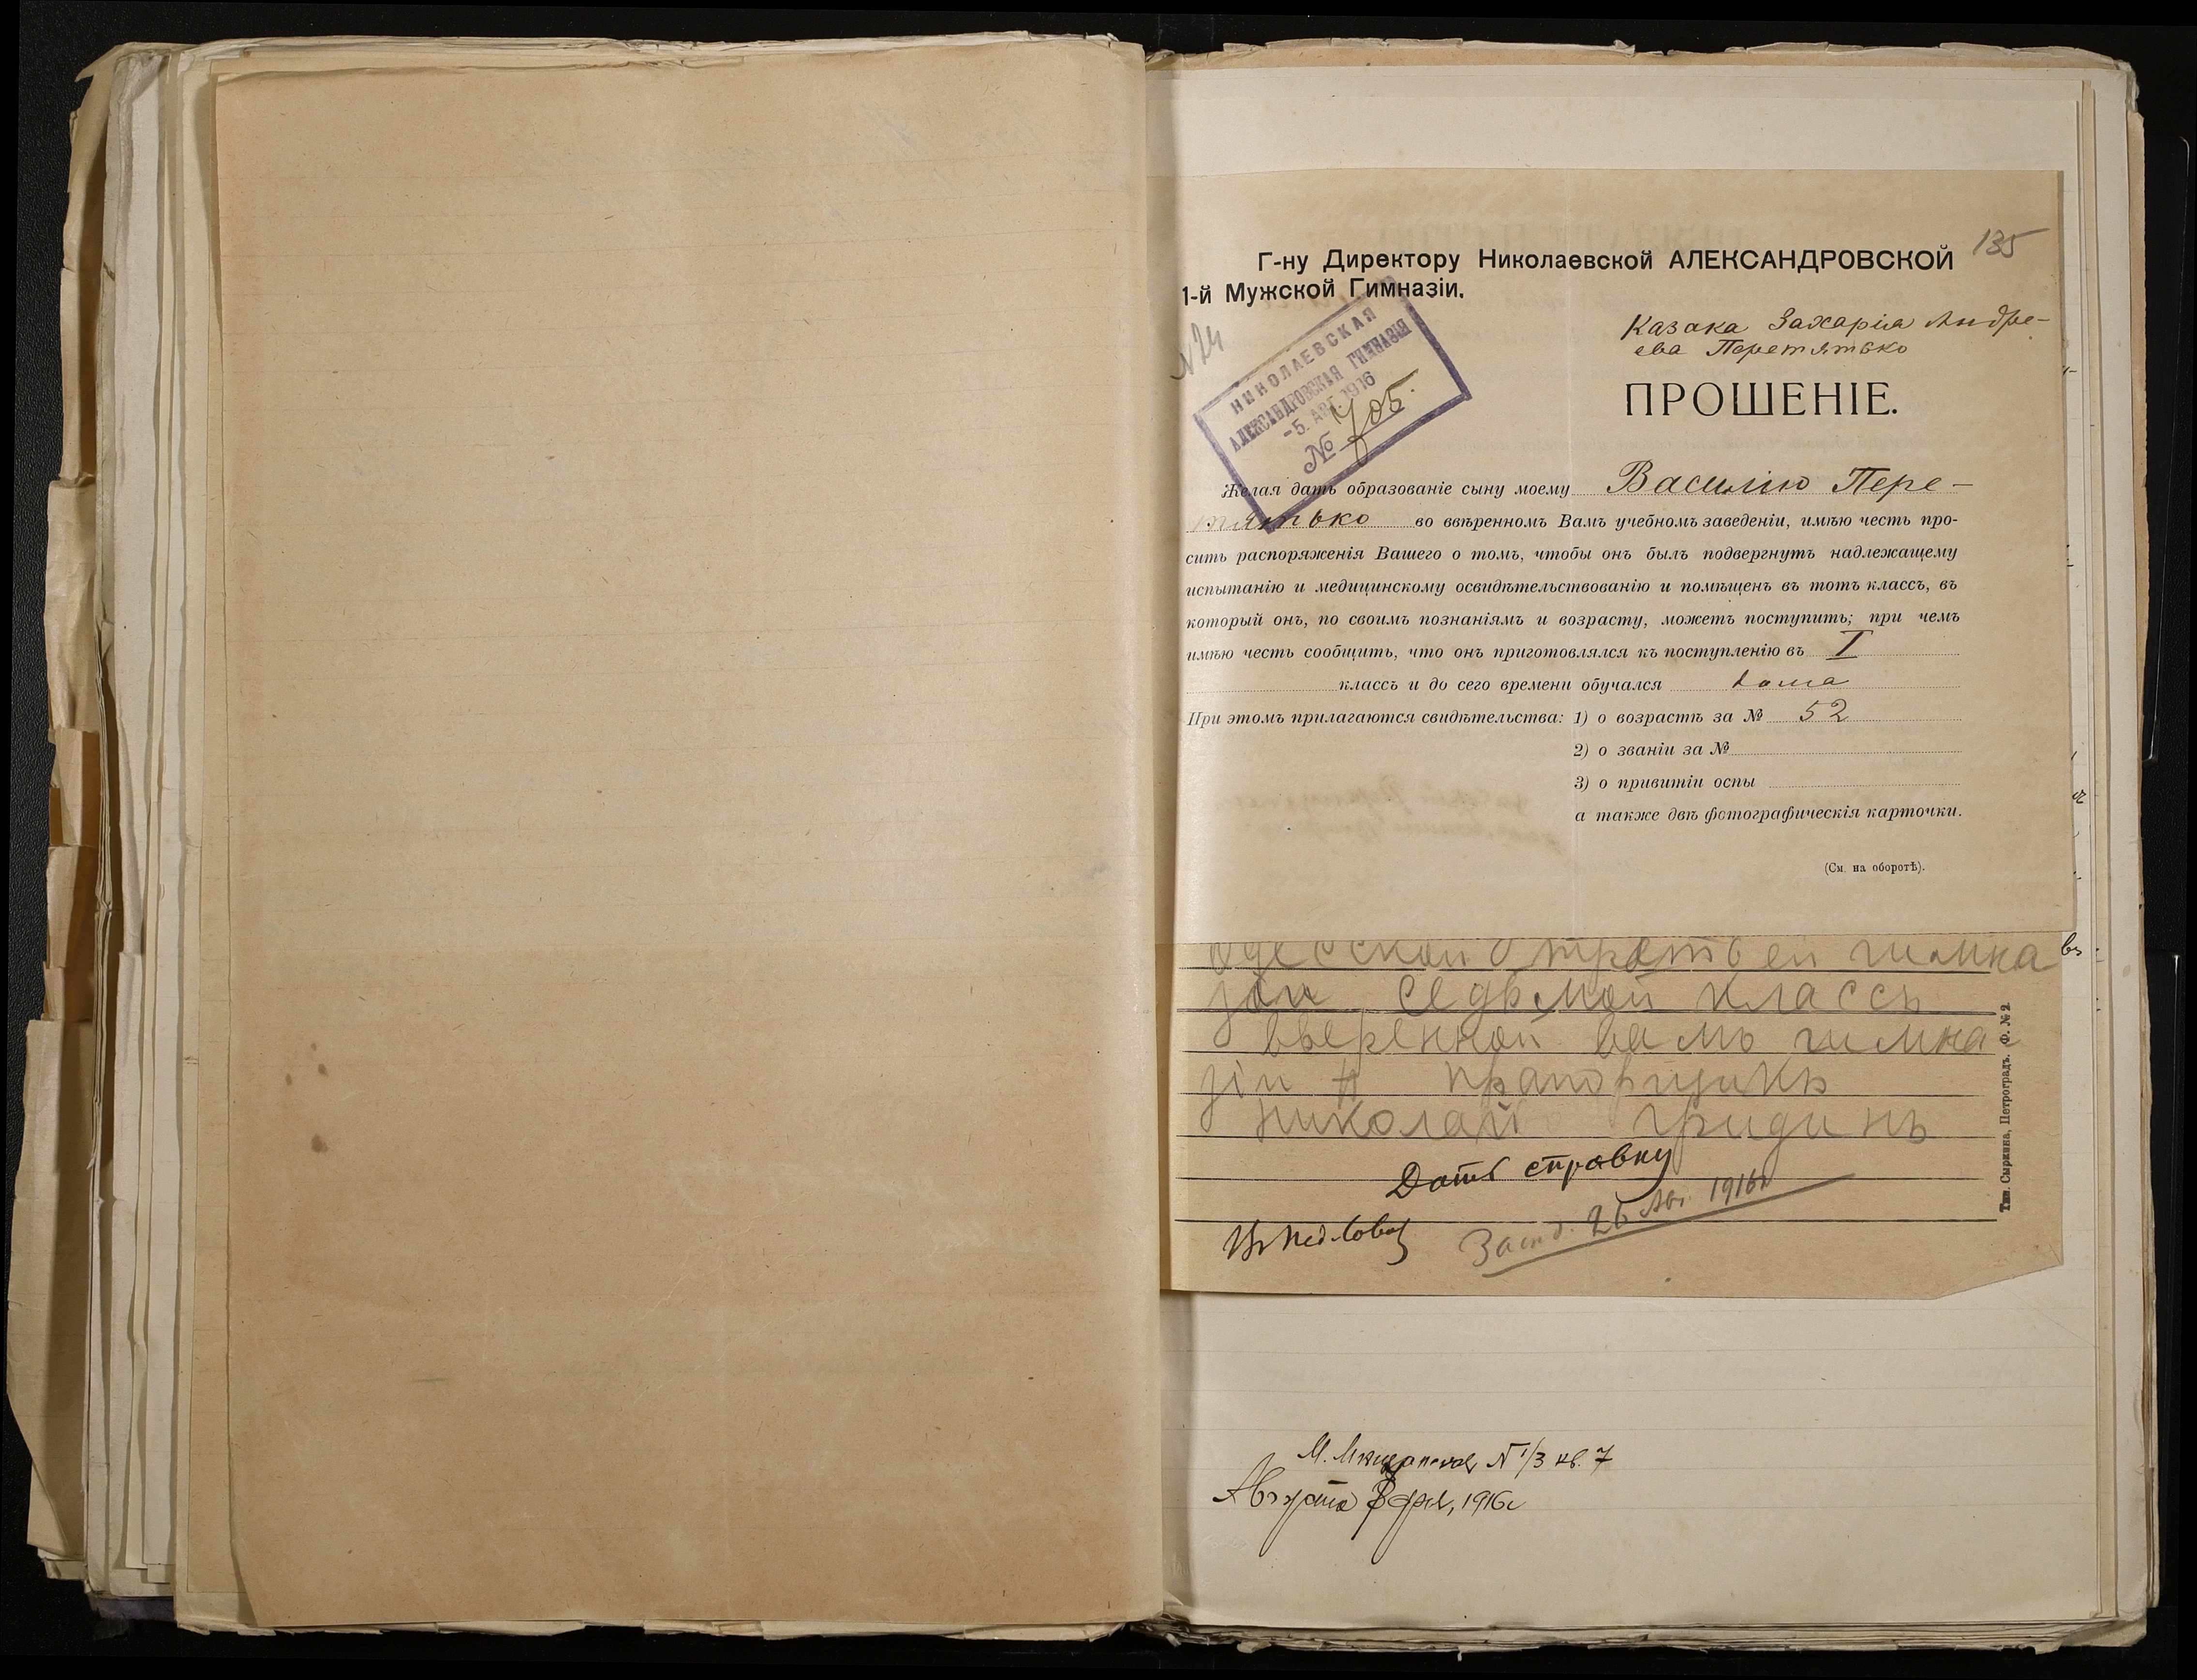 135
Г-ну Директору Николаевской АЛЕКСАНДРОВСКОЙ
1-й Мужской Гимназіи.
№24
Казака Захарія Андре-
ева Перетятько
НИКОЛАЕВСКАЯ
АЛЕКСАНДРОВСКАЯ ГИМНАЗІЯ
-5. АВГ. 1916
№ 705.
ПРОШЕНІЕ.
Желая дать образованіе сыну моему Василію Пере-
тятько во ввѣренномъ Вамъ учебномъ заведеніи, имѣю честь про-
сить распоряженія Вашего о томъ, чтобы онъ былъ подвергнутъ надлежащему
испытанію и медицинскому освидѣтельствованію и помѣщенъ въ тотъ классъ, въ
который онъ, по своимъ познаніямъ и возрасту, можетъ поступить; при чемъ
имѣю честь сообщить, что онъ приготовлялся къ поступленію въ I
классъ и до сего времени обучался дома
При этомъ прилагаются свидѣтельства: 1) о возрастѣ за № 52
2) о званіи за №
3) о привитіи оспы
а также двѣ фотографическія карточки.
(См. на оборотѣ).
одесской третьей гимна
зіи седьмой классъ
вверенной вамъ гимна
зіи прапорщикъ
николай гридинъ
Дать справку
25 Авг. 1916г
Тип. Сыркина, Петроградъ. Ф. № 2
№ 1/3 кв. 7
Августа 1916г